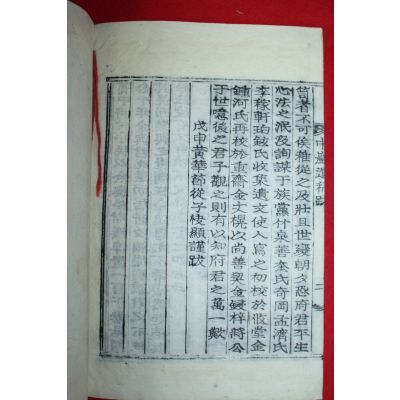 皆著不可俟稚從之及壯且世變朝夕恐府君平生
心法之泯及詢謀于族黨竹泉善奎氏奇岡孟濟氏
李稼軒珀鉉氏收集遺文使人寫之初校於敀堂金
鍾河氏再校於重齋金子榥以尚善與金鋟梓將公
于世噫後之君子觀之則有以知府君之萬一歟
戊申黃華節從子棱顯謹跋